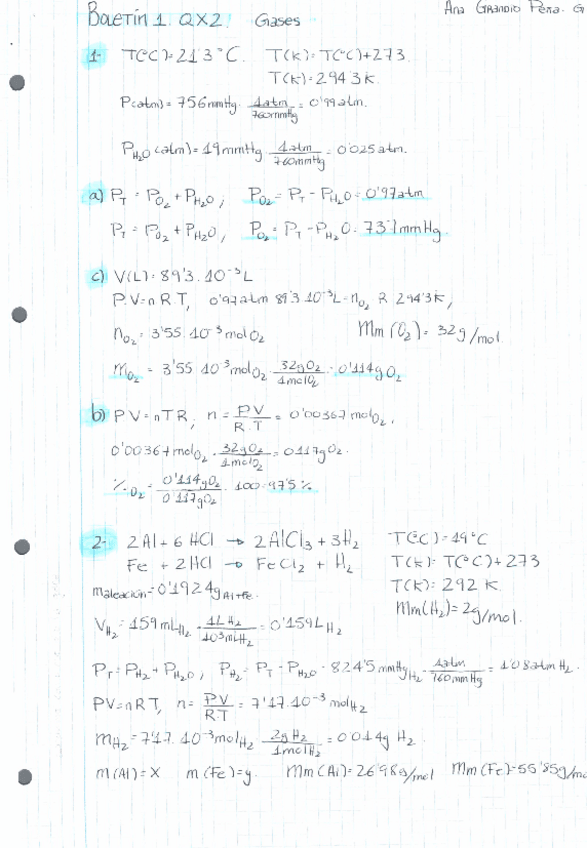 Boletín 1 QX2. Gases
Ana Grandío Peña. G
1- T(ºC)=21'3ºC. T(K)=T(ºC)+273.
T(K)=294'3K.
P(atm)=756mmHg · 1atm/760mmHg = 0'99atm.
P_H2O (atm)=19mmHg · 1atm/760mmHg = 0'025atm.
a) P_T = P_O2 + P_H2O ; P_O2 = P_T - P_H2O = 0'97atm
P_T = P_O2 + P_H2O, P_O2 = P_T - P_H2O = 737mmHg.
c) V(L)=89'3·10⁻³L
P·V=nRT, 0'97atm·89'3·10⁻³L=n_O2·R·294'3K,
n_O2 = 3'55·10⁻³mol O2 Mm(O2)=32g/mol
m_O2 = 3'55·10⁻³mol O2 · 32gO2/1molO2 = 0'114g O2
b) PV=nTR, n = PV/R·T = 0'00367 mol O2,
0'00367mol O2 · 32gO2/1molO2 = 0'117g O2.
% O2 = 0'114gO2/0'117gO2 · 100 = 97'5 %
2- 2Al + 6HCl → 2AlCl3 + 3H2 T(ºC)=19ºC
Fe + 2HCl → FeCl2 + H2 T(K)=T(ºC)+273
m aleación=0'1924g Al+Fe. T(K)=292 K.
Mm(H2)=2g/mol.
V_H2 = 159mL H2 · 1L H2/10³mL H2 = 0'159L H2
P_T = P_H2 + P_H2O, P_H2 = P_T - P_H2O = 824'5 mmHg H2 · 1atm/760mmHg = 1'08atm H2.
PV=nRT, n = PV/RT = 7'17·10⁻³ mol H2
m_H2 = 7'17·10⁻³mol H2 · 2g H2/1mol H2 = 0'014g H2.
m(Al)=x m(Fe)=y. Mm(Al)=26'98g/mol Mm(Fe)=55'85g/mo